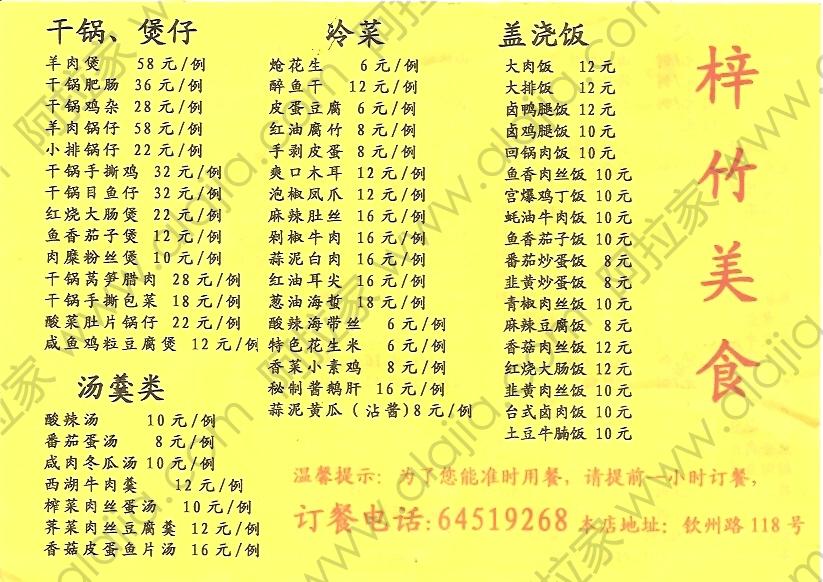 干锅、煲仔
羊肉煲 58元/例
干锅肥肠 36元/例
干锅鸡杂 28元/例
羊肉锅仔 58元/例
小排锅仔 22元/例
干锅手撕鸡 32元/例
干锅目鱼仔 32元/例
红烧大肠煲 22元/例
鱼香茄子煲 12元/例
肉糜粉丝煲 10元/例
干锅莴笋腊肉 28元/例
干锅手撕包菜 18元/例
酸菜肚片锅仔 22元/例
咸鱼鸡粒豆腐煲 12元/例
汤羹类
酸辣汤 10元/例
番茄蛋汤 8元/例
咸肉冬瓜汤 10元/例
西湖牛肉羹 12元/例
榨菜肉丝蛋汤 10元/例
荠菜肉丝豆腐羹 12元/例
香菇皮蛋鱼片汤 16元/例
冷菜
炝花生 6元/例
醉鱼干 12元/例
皮蛋豆腐 6元/例
红油腐竹 8元/例
手剥皮蛋 8元/例
爽口木耳 12元/例
泡椒凤爪 12元/例
麻辣肚丝 16元/例
剁椒牛肉 16元/例
蒜泥白肉 16元/例
红油耳尖 16元/例
葱油海蜇 18元/例
酸辣海带丝 6元/例
特色花生米 6元/例
香菜小素鸡 8元/例
秘制酱鹅肝 16元/例
蒜泥黄瓜(沾酱)8元/例
盖浇饭
大肉饭 12元
大排饭 12元
卤鸭腿饭 10元
卤鸡腿饭 10元
回锅肉饭 10元
鱼香肉丝饭 10元
宫爆鸡丁饭 10元
蚝油牛肉饭 10元
鱼香茄子饭 10元
番茄炒蛋饭 8元
韭黄炒蛋饭 8元
青椒肉丝饭 10元
麻辣豆腐饭 8元
香菇肉丝饭 12元
红烧大肠饭 12元
韭黄肉丝饭 10元
台式卤肉饭 10元
土豆牛腩饭 10元
梓竹美食
温馨提示：为了您能准时用餐，请提前一小时订餐，
订餐电话:64519268 本店地址：钦州路118号
阿拉家 www.alajia.com